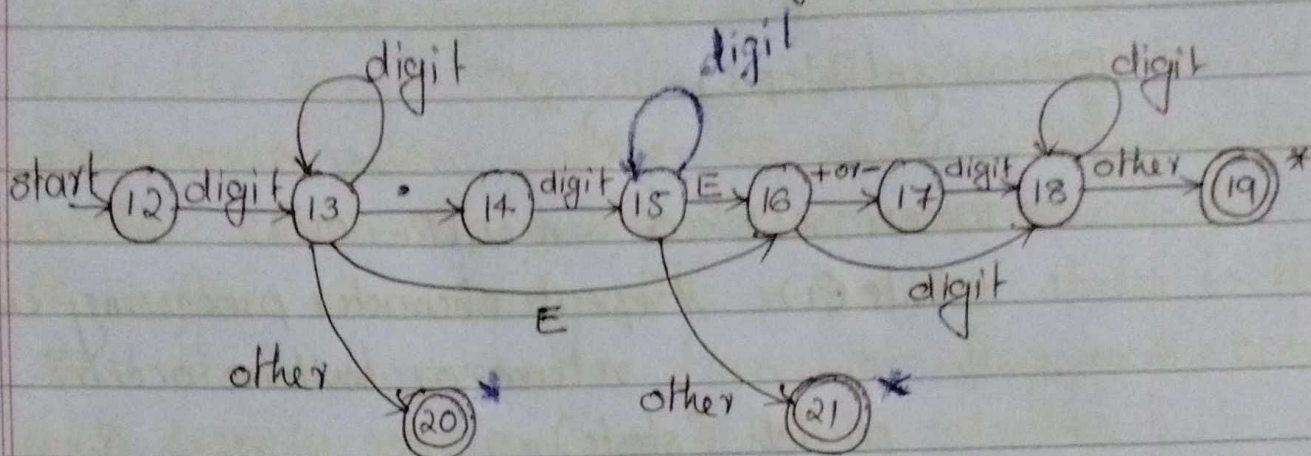 digit digit digit
start 12 digit 13 . 14 digit 15 E 16 +or- 17 digit 18 other 19 *
E digit
other 20 * other 21 *